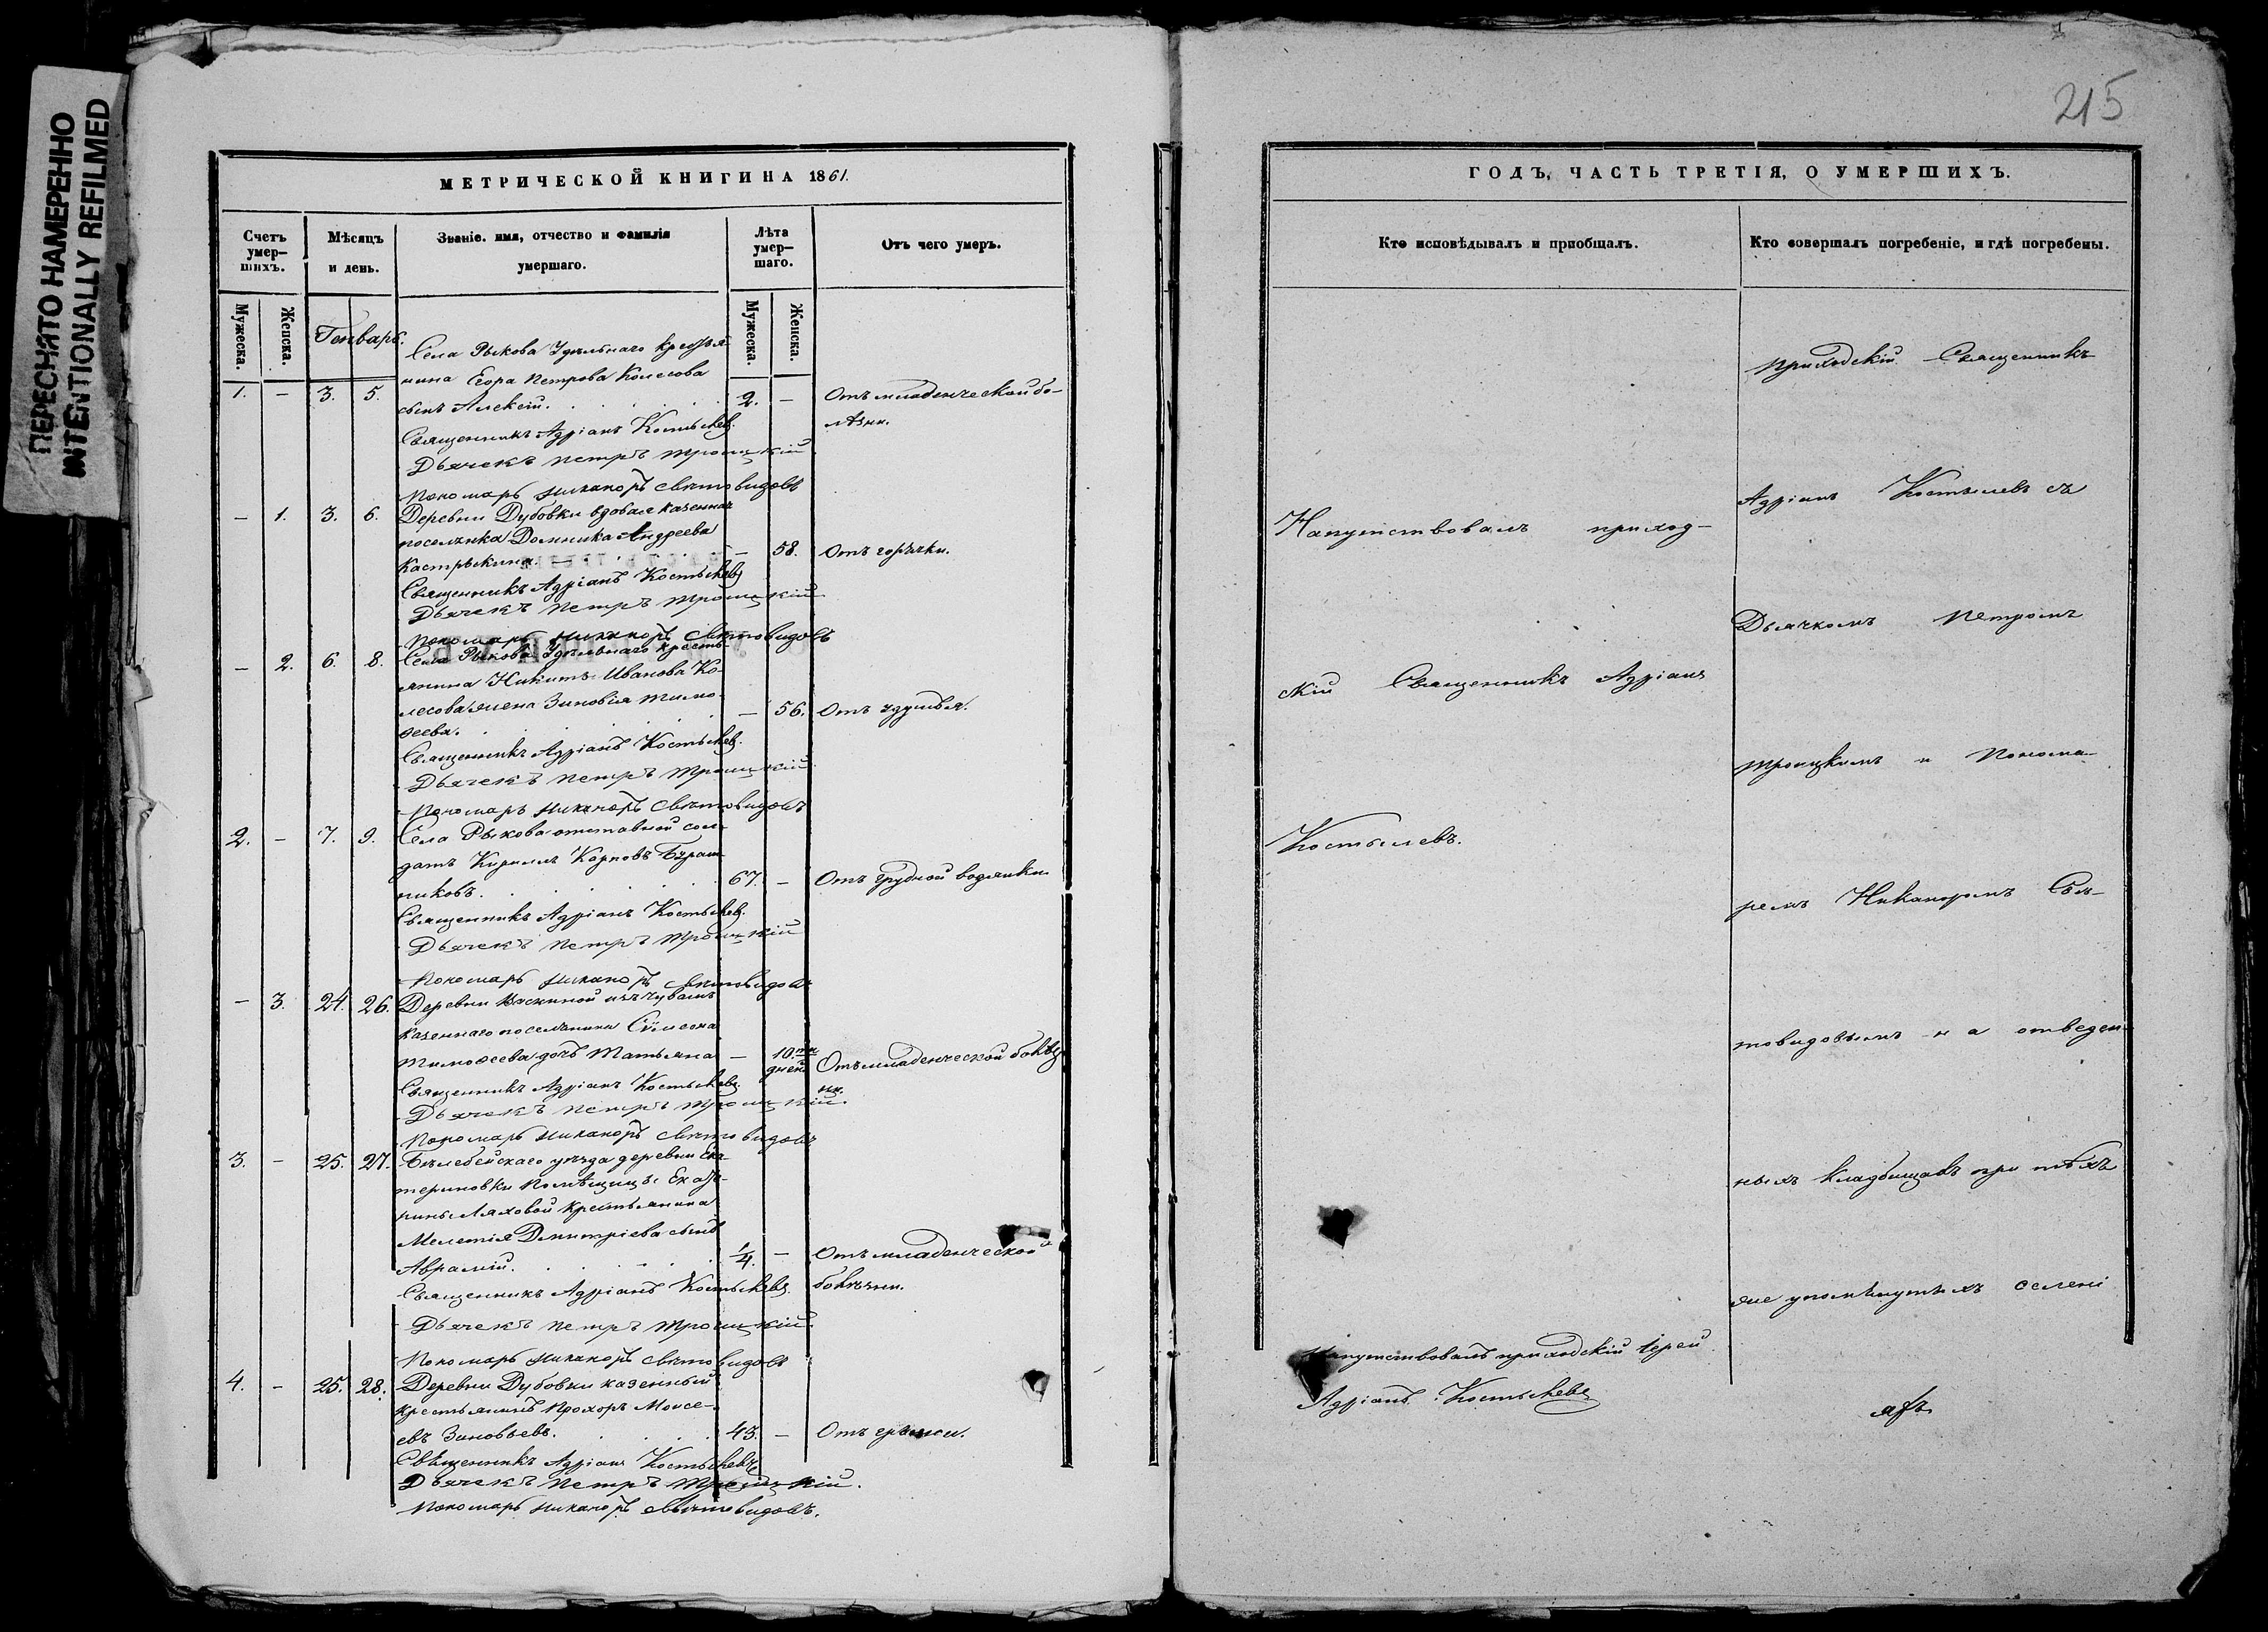 ПЕРЕСНЯТО НАМЕРЕННО
INTENTIONALLY REFILMED
МЕТРИЧЕСКОЙ КНИГИ НА 1861.
Счетъ умер-шихъ.
Мѣсяцъ и день.
Званіе. имя, отчество и фамилія умершаго.
Лѣта умер-шаго.
Отъ чего умеръ.
Мужеска.
Женска.
Мужеска.
Женска.
Генварь.
Села Рыкова Удѣльнаго крестья-
нина Егора Петрова Колесова
1. — 3. 5. сынъ Алексій. 2. — Отъ младенческой бо-
лѣзни.
Священникъ Адріанъ Костылевъ.
Дьячекъ Петръ Троицкій
Пономарь Никаноръ Святовидовъ
— 1. 3. 6. Деревни Дубовки вдовая казенная
поселянка Домника Андреева
— 58. Отъ горячки.
Священникъ Адріанъ Костылевъ
Дьячекъ Петръ Троицкій
Пономарь Никаноръ Святовидовъ
— 2. 6. 8. Села Рыкова Удѣльнаго кресть-
янина Никиты Иванова Ко-
лесова жена Зиновія Тимо-
ѳеева. — 56. Отъ удушья.
Священникъ Адріанъ Костылевъ.
Дьячекъ Петръ Троицкій
Пономарь Никаноръ Святовидовъ
2. — 7. 9. Села Рыкова отставной сол-
датъ Кириллъ Карповъ
никовъ. 67. — Отъ грудной водянки
Священникъ Адріанъ Костылевъ.
Дьячекъ Петръ Троицкій
Пономарь Никаноръ Святовидовъ
— 3. 24. 26. Деревни изъ чувашъ
казеннаго поселянина Сѵмеона
Тимоѳеева дочь Татьяна — 10.ти дней Отъ младенческой болѣз
ни.
Священникъ Адріанъ Костылевъ.
Дьячекъ Петръ Троицкій.
Пономарь Никаноръ Святовидовъ
3. — 25. 27. Белебейскаго уѣзда деревни Ека-
териновки Помѣщицы
крестьянина
Мелетія Димитріева сынъ
Аврамій. 1/4. — Отъ младенческой
болѣзни.
Священникъ Адріанъ Костылевъ
Дьячекъ Петръ Троицкій.
Пономарь Никаноръ Святовидовъ
4. — 25. 28. Деревни Дубовки казенный
крестьянинъ Прохоръ Моисе-
евъ Зиновьевъ. 43. — Отъ
Священникъ Адріанъ Костылевъ
Дьячекъ Петръ Троицкій.
Пономарь Никаноръ Святовидовъ.
215
ГОДЪ, ЧАСТЬ ТРЕТІЯ, О УМЕРШИХЪ.
Кто исповѣдывалъ и пріобщалъ.
Кто совершалъ погребеніе, и гдѣ погребены.
Напутствовалъ приход-
скій Священникъ Адріанъ
Костылевъ.
Напутствовалъ приходскій Іерей
Адріанъ Костылевъ
Приходскій Священникъ
Адріанъ Костылевъ съ
Дьячкомъ Петромъ
Троицкимъ и Понома-
ремъ Никаноромъ Свя-
товидовымъ на отведен-
ныхъ кладбищахъ при тѣхъ
же упомянутыхъ селені
яхъ